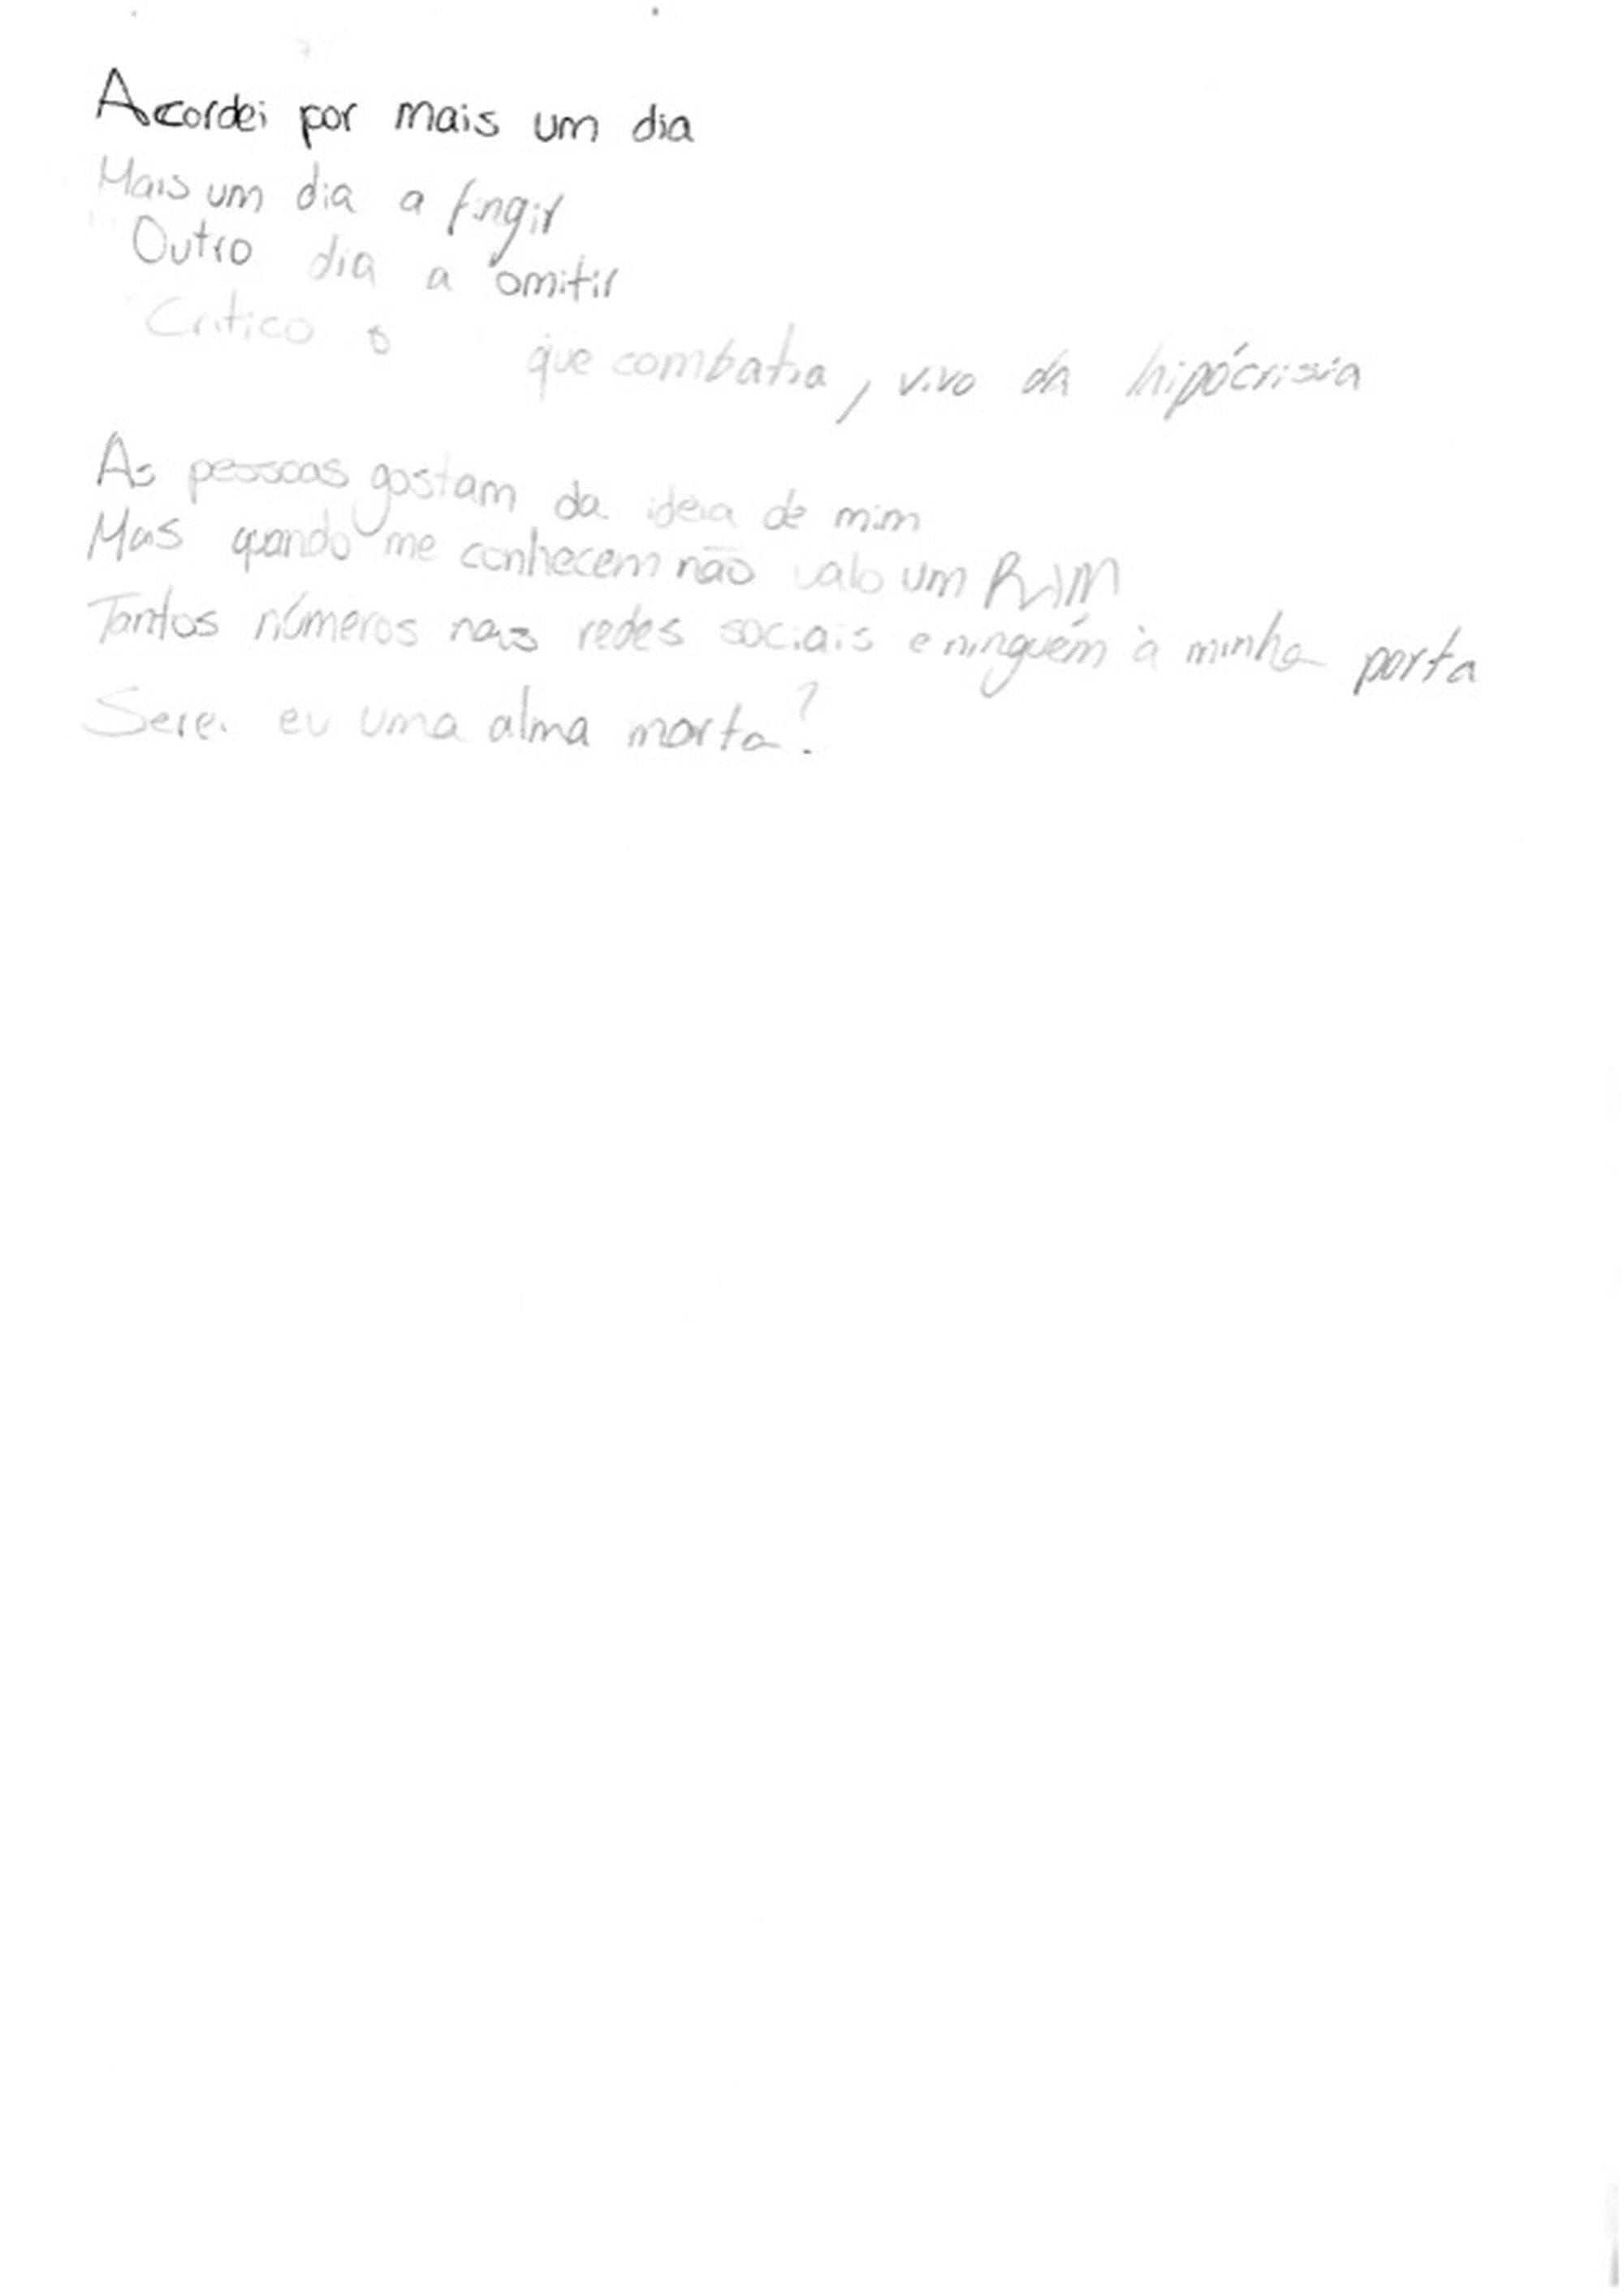 Acordei por mais um dia
Mais um dia a fingir
Outro dia a omitir
Critico o que combatia, vivo da hipócrisia
As pessoas gostam da ideia de mim
Mas quando me conhecem não valo um RIM
Tantos números nas redes sociais e ninguém à minha porta
Serei eu uma alma morta?